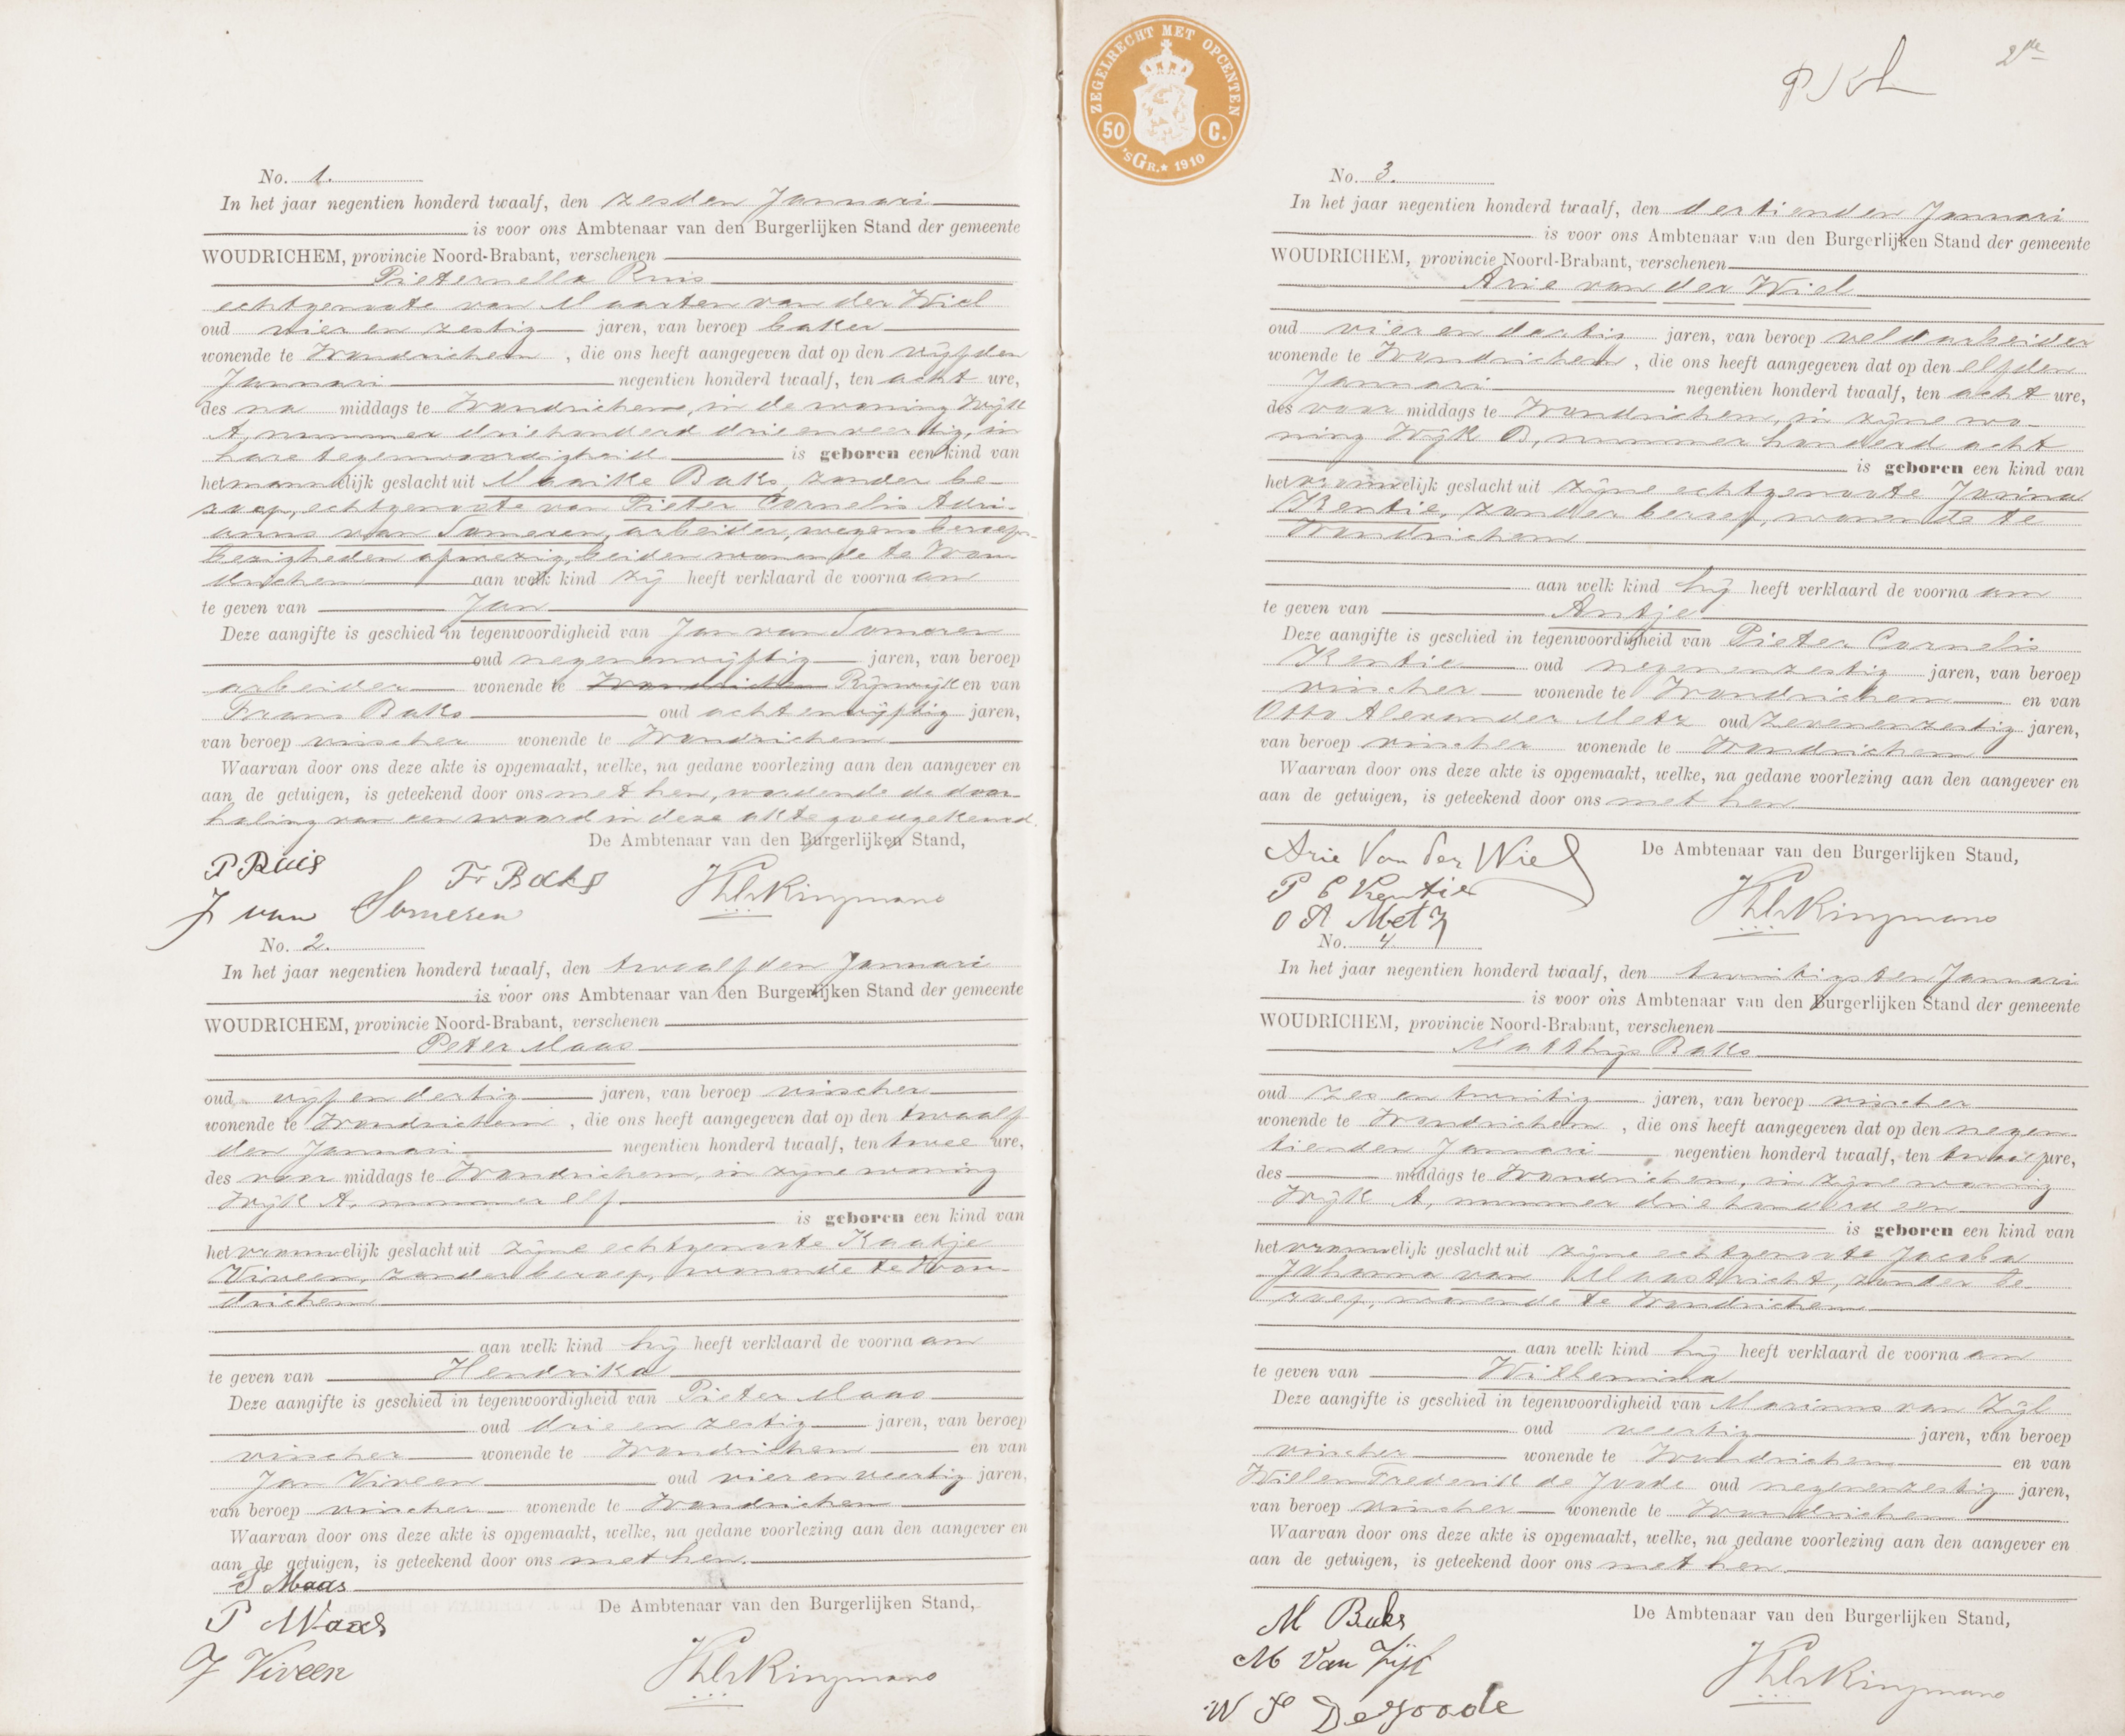 No. 1.
In het jaar negentien honderd twaalf, den zesden Januari
is voor ons Ambtenaar van den Burgerlijken Stand der gemeente
WOUDRICHEM, provincie Noord-Brabant, verschenen
Pieternella Ruis
echtgenoote van Maarten van der Wiel
oud vier en zestig jaren, van beroep baker
wonende te Woudrichem, die ons heeft aangegeven dat op den vijfden
Januari negentien honderd twaalf, ten acht ure,
des na middags te Woudrichem, in de woning Wijk
A, nummer driehonderd drieenveertig, in
hare tegenwoordigheid is geboren een kind van
het mannelijk geslacht uit Maaike Baks, zonder be-
roep, echtgenoote van Pieter Cornelis Adri-
anus van Someren, arbeider, wegens beroeps-
bezigheden afwezig, beiden wonende te Wou-
drichem aan welk kind zij heeft verklaard de voornaam
te geven van Jan
Deze aangifte is geschied in tegenwoordigheid van Jan van Someren
oud negenenvijftig jaren, van beroep
arbeider wonende te Woudrichem Rijswijk en van
Frans Baks oud achtenvijftig jaren,
van beroep visscher wonende te Woudrichem
Waarvan door ons deze akte is opgemaakt, welke, na gedane voorlezing aan den aangever en
aan de getuigen, is geteekend door ons met hen, wordende de door-
haling van een woord in deze akte goedgekeurd.
De Ambtenaar van den Burgerlijken Stand,
P Ruis
Fr Baks
J van Someren
No. 2.
In het jaar negentien honderd twaalf, den twaalfden Januari
is voor ons Ambtenaar van den Burgerlijken Stand der gemeente
WOUDRICHEM, provincie Noord-Brabant, verschenen
Peter Maas
oud vijf en dertig jaren, van beroep visscher
wonende te Woudrichem, die ons heeft aangegeven dat op den twaalf
den Januari negentien honderd twaalf, ten twee ure,
des voor middags te Woudrichem, in zijne woning
Wijk A, nummer elf
is geboren een kind van
het vrouwelijk geslacht uit zijne echtgenoote Kaatje
Viveen, zonder beroep, wonende te Wou-
drichem
aan welk kind hij heeft verklaard de voornaam
te geven van Hendrika
Deze aangifte is geschied in tegenwoordigheid van Pieter Maas
oud drie en zestig jaren, van beroep
visscher wonende te Woudrichem en van
Jan Viveen oud vier en veertig jaren,
van beroep visscher wonende te Woudrichem
Waarvan door ons deze akte is opgemaakt, welke, na gedane voorlezing aan den aangever en
aan de getuigen, is geteekend door ons met hen.
P Maas
De Ambtenaar van den Burgerlijken Stand,
P Maas
J Viveen
ZEGELRECHT MET OPCENTEN
50 C.
'sGR. 1910
2de
No. 3.
In het jaar negentien honderd twaalf, den dertienden Januari
is voor ons Ambtenaar van den Burgerlijken Stand der gemeente
WOUDRICHEM, provincie Noord-Brabant, verschenen
Arie van der Wiel
oud vier en dertig jaren, van beroep veldarbeider
wonende te Woudrichem, die ons heeft aangegeven dat op den elfden
Januari negentien honderd twaalf, ten acht ure,
des voor middags te Woudrichem, in zijne wo-
ning Wijk B, nummer honderd acht
is geboren een kind van
het vrouwelijk geslacht uit zijne echtgenoote Josina
Kentie, zonder beroep, wonende te
Woudrichem
aan welk kind hij heeft verklaard de voornaam
te geven van Antje
Deze aangifte is geschied in tegenwoordigheid van Pieter Cornelis
Kentie oud negenenzestig jaren, van beroep
visscher wonende te Woudrichem en van
Otto Alexander Metz oud zevenenzestig jaren,
van beroep visscher wonende te Woudrichem
Waarvan door ons deze akte is opgemaakt, welke, na gedane voorlezing aan den aangever en
aan de getuigen, is geteekend door ons met hen
Arie Van der Wiel
De Ambtenaar van den Burgerlijken Stand,
P C Kentie
O A Metz
No. 4
In het jaar negentien honderd twaalf, den twintigsten Januari
is voor ons Ambtenaar van den Burgerlijken Stand der gemeente
WOUDRICHEM, provincie Noord-Brabant, verschenen
Matthijs Baks
oud zes en twintig jaren, van beroep visscher
wonende te Woudrichem, die ons heeft aangegeven dat op den negen
tienden Januari negentien honderd twaalf, ten twaalf ure,
des middags te Woudrichem, in zijne woning
Wijk A, nummer driehonderd een
is geboren een kind van
het vrouwelijk geslacht uit zijne echtgenoote Jacoba
Johanna van Maastricht, zonder be-
roep, wonende te Woudrichem
aan welk kind hij heeft verklaard de voornaam
te geven van Willemina
Deze aangifte is geschied in tegenwoordigheid van Marinus van Zijl
oud veertig jaren, van beroep
visscher wonende te Woudrichem en van
Willem Frederik de Joode oud negenenzestig jaren,
van beroep visscher wonende te Woudrichem
Waarvan door ons deze akte is opgemaakt, welke, na gedane voorlezing aan den aangever en
aan de getuigen, is geteekend door ons met hen.
De Ambtenaar van den Burgerlijken Stand,
M Baks
M van Zijl
W F De Joode